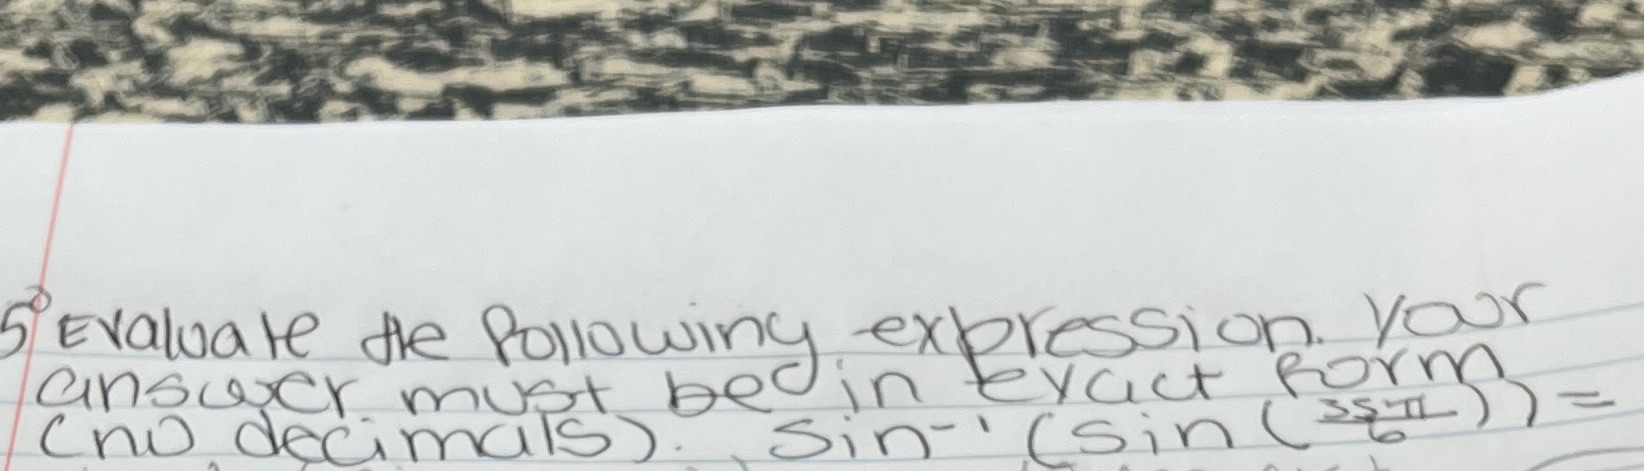 5° Evaluate the following expression. Your
answer must be in exact form
(no decimals). sin⁻¹(sin(35π/6)) =